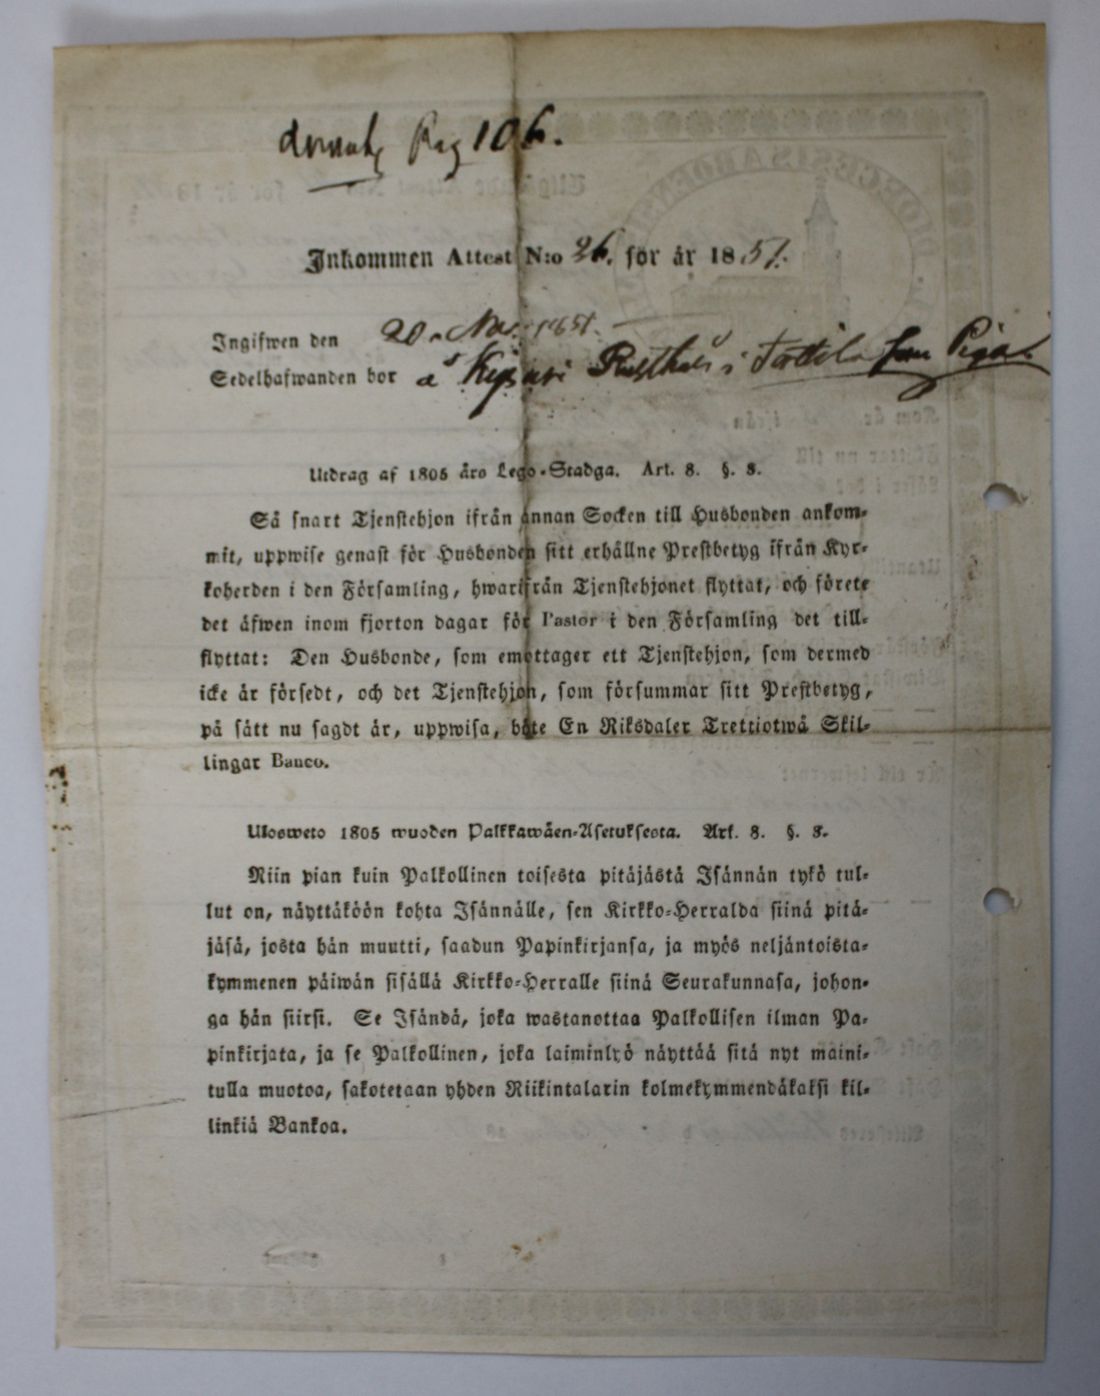 Pag 106.
Inkommen Attest N:o 26. för år 1851.
Ingifwen den 20 Nov. 1851.
Sedelhafwanden bor å Kipari Rusthåll i Tottila som Piga.
Utdrag af 1805 års Lego-Stadga. Art. 8. §. 8.
Så snart Tjenstehjon ifrån annan Socken till Husbonden ankom-
mit, uppwise genast för Husbonden sitt erhållne Prestbetyg ifrån Kyr-
koherden i den Församling, hwarifrån Tjenstehjonet flyttat, och förete
det äfwen inom fjorton dagar för Pastor i den Församling det till-
flyttat: Den Husbonde, som emottager ett Tjenstehjon, som dermed
icke är försedt, och det Tjenstehjon, som försummar sitt Prestbetyg,
på sätt nu sagdt är, uppwisa, böte En Riksdaler Trettiotwå Skil-
lingar Banco.
Ulosweto 1805 wuoden Palkkawäen-Asetuksesta. Art. 8. §. 8.
Niin pian kuin Palkollinen toisesta pitäjästä Isännän tykö tul-
lut on, näyttäköön kohta Isännälle, sen Kirkko-Herralda siinä pitä-
jäsä, josta hän muutti, saadun Papinkirjansa, ja myös neljäntoista-
kymmenen päiwän sisällä Kirkko-Herralle siinä Seurakunnasa, johon-
ga hän siirsi. Se Isändä, joka wastanottaa Palkollisen ilman Pa-
pinkirjata, ja se Palkollinen, joka laiminlyö näyttää sitä nyt maini-
tulla muotoa, sakotetaan yhden Riikintalarin kolmekymmendäkaksi kil-
linkiä Bankoa.